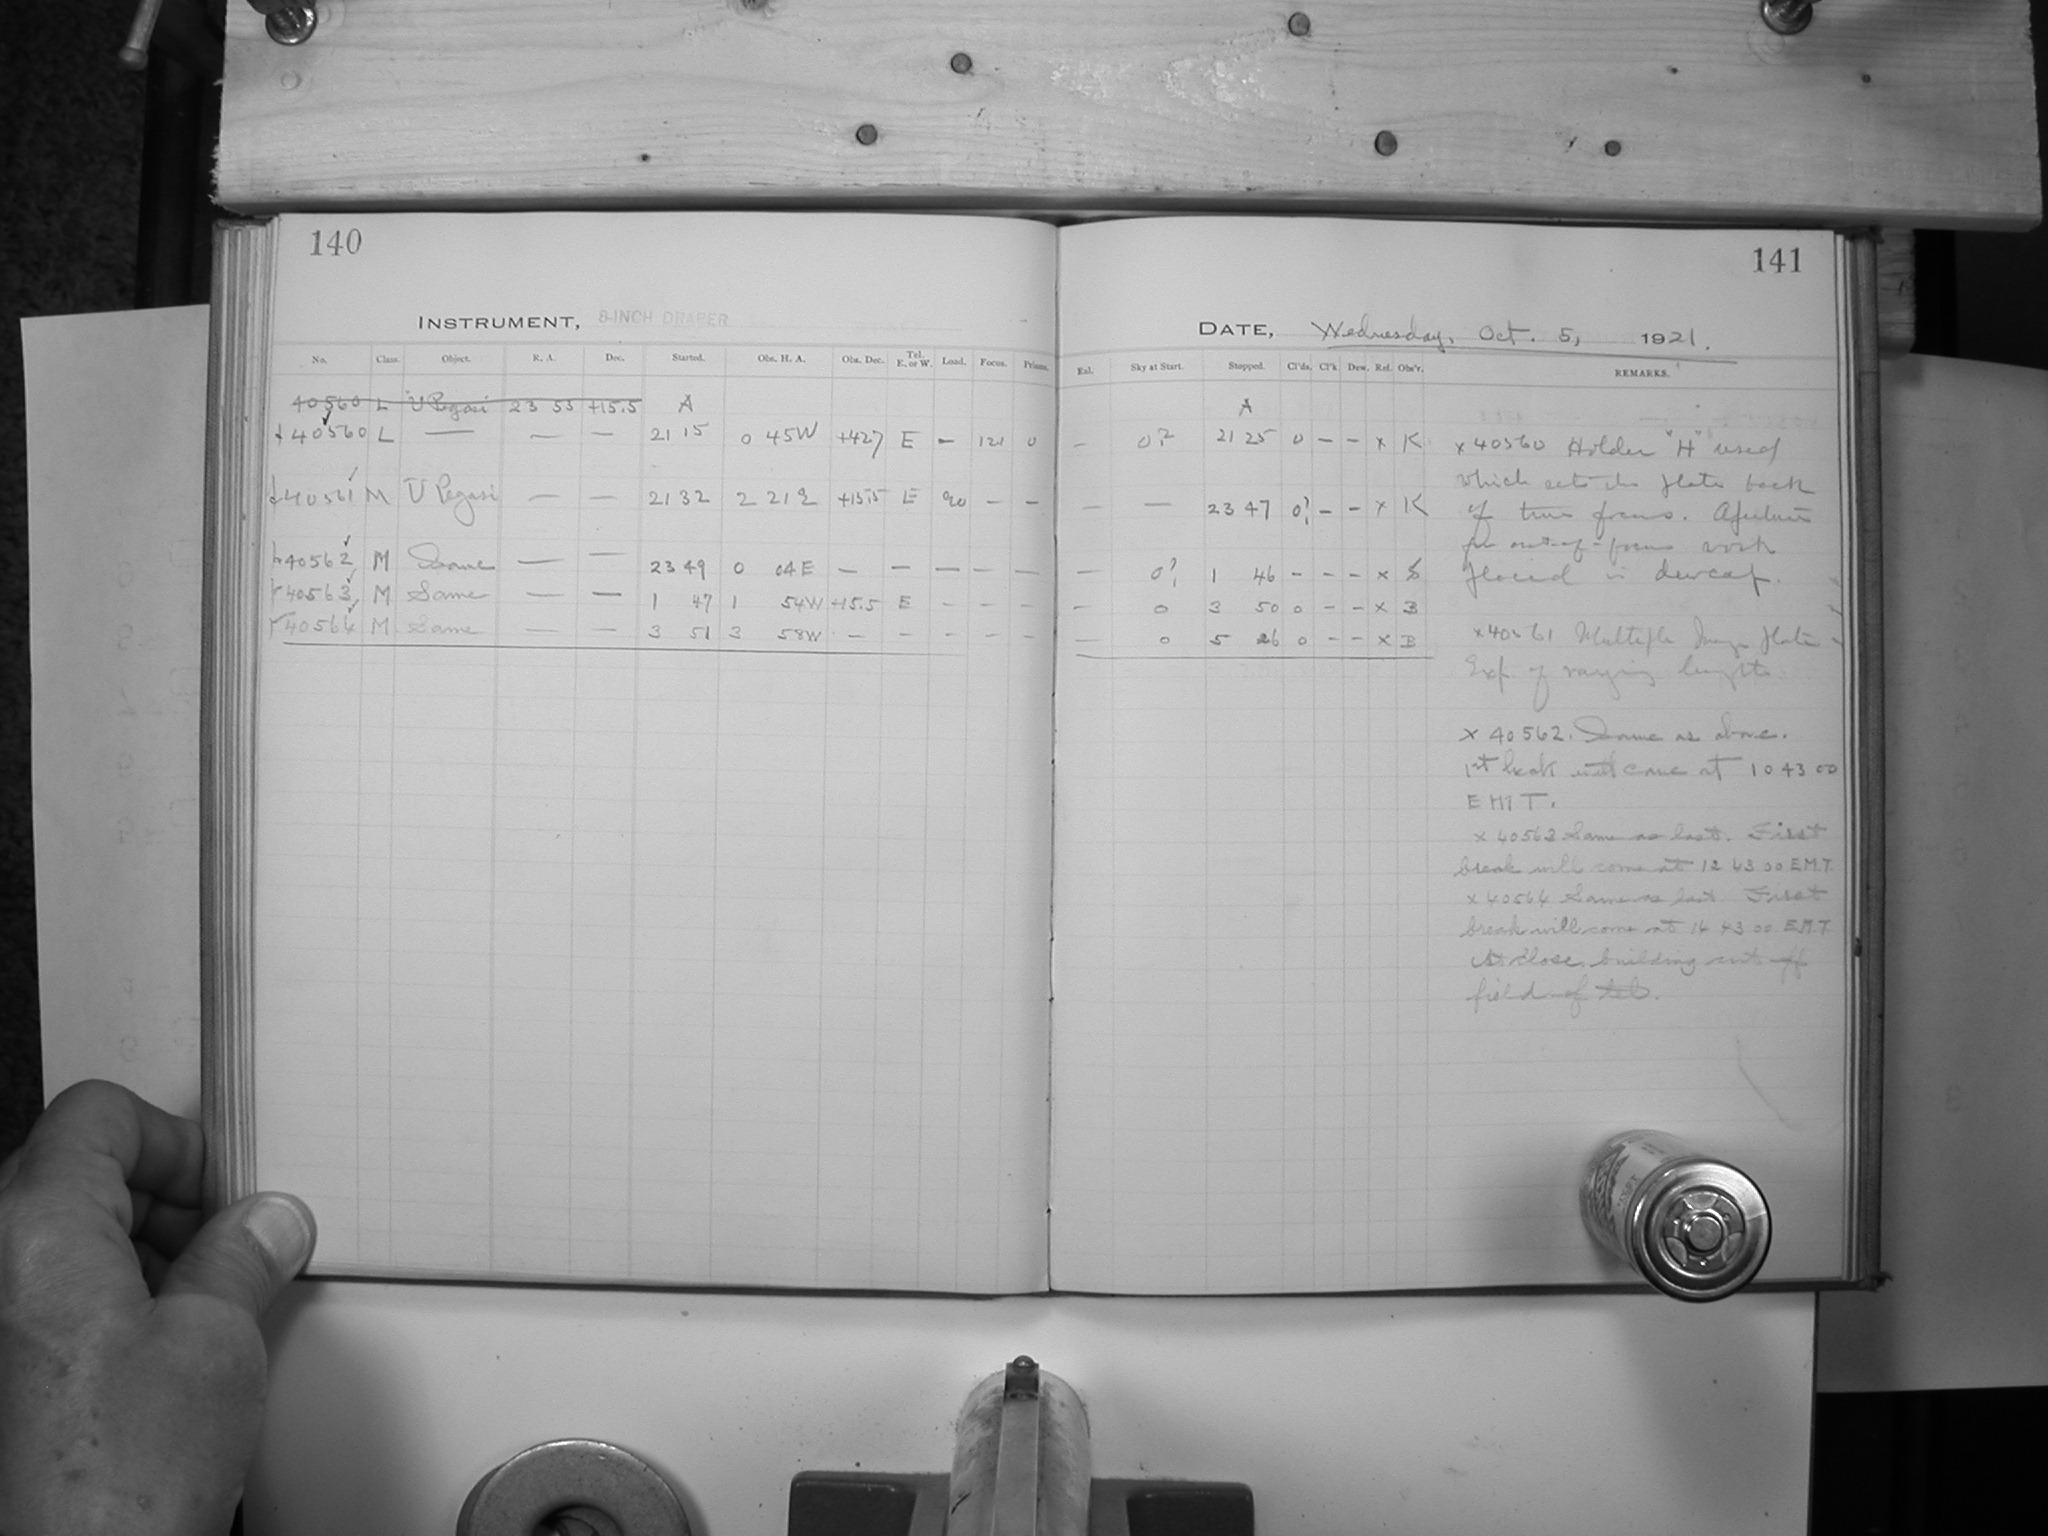 140
INSTRUMENT, 8-INCH DRAPER
No. Class. Object. R. A. Dec. Started. Obs. H. A. Obs. Dec. Tel. E. or W. Load. Focus. Prisms.
40560 L U Pegasi 23 53 +15.5 A
40560 L — — — 21 15 0 45W +427 E - 121 0
40561 M U Pegasi — — 21 32 2 21 +15.5 E 90 - -
40562 M Same — — 23 49 0 04E — — — — —
40563 M Same — — 1 47 1 54W +15.5 E - - -
40564 M Same — — 3 51 3 58W - - - - -
141
DATE, Wednesday, Oct. 5, 1921.
Sky at Start. Stopped. Cl'ds. Cl'k Dew. Ref. Obs'r. REMARKS.
A
- 0? 21 25 0 - - x K
— — 23 47 0? - - x K
— 0? 1 46 - - - x S
- 0 3 50 0 - - x B
— 0 5 26 0 - - x B
x 40560 Holder "H" used
which sets the plate back
of true focus. Aperture
for out-of-focus work
placed in dewcap.
x 40561 Multiple Image plate
Exp. of varying lengths.
x 40562. Same as above.
1st break will come at 10 43 00
E M T.
x 40563 Same as last. First
break will come at 12 43 00 E.M.T.
x 40564 Same as last. First
break will come at 14 43 00 E.M.T.
At close, building cut off
field of tel.